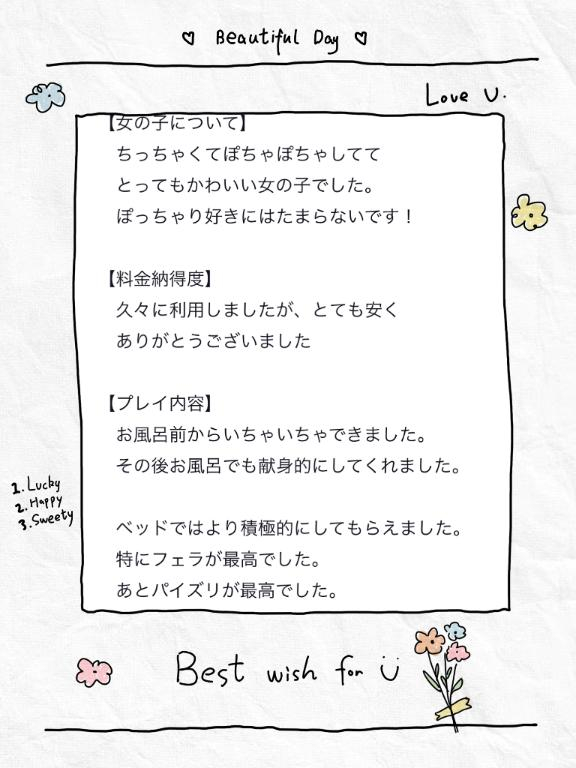 ♡ Beautiful Day ♡
Love U.
【女の子について】
ちっちゃくてぽちゃぽちゃしてて
とってもかわいい女の子でした。
ぽっちゃり好きにはたまらないです！
【料金納得度】
久々に利用しましたが、とても安く
ありがとうございました
【プレイ内容】
お風呂前からいちゃいちゃできました。
その後お風呂でも献身的にしてくれました。
ベッドではより積極的にしてもらえました。
特にフェラが最高でした。
あとパイズリが最高でした。
1. Lucky
2. Happy
3. Sweety
Best wish for Ü